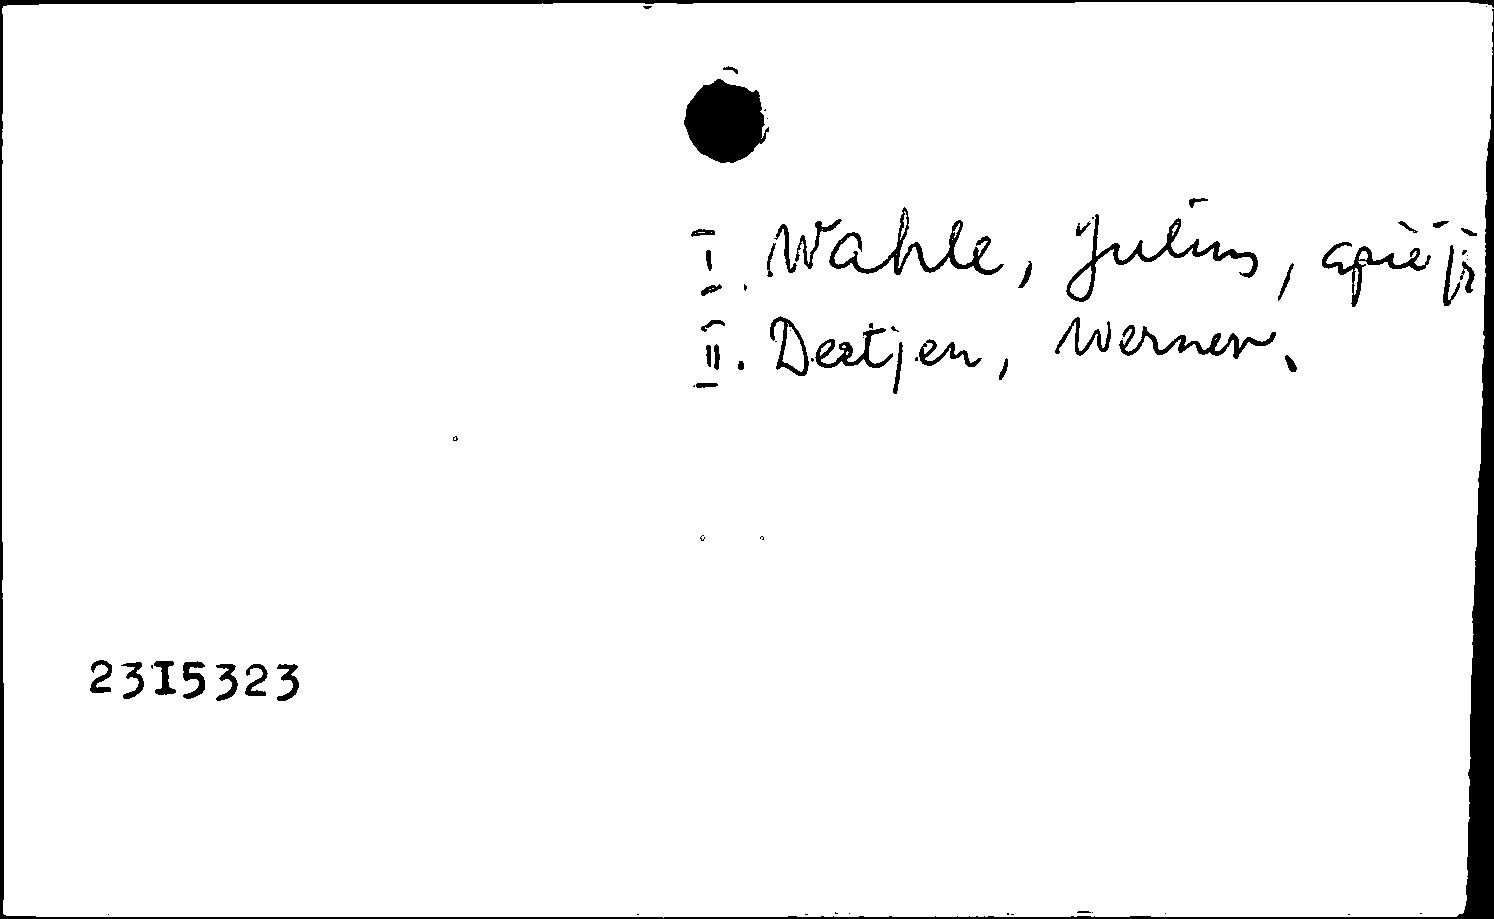 I. Wahle, Julius, apie jį
II. Deetjen, Werner.
23I5323